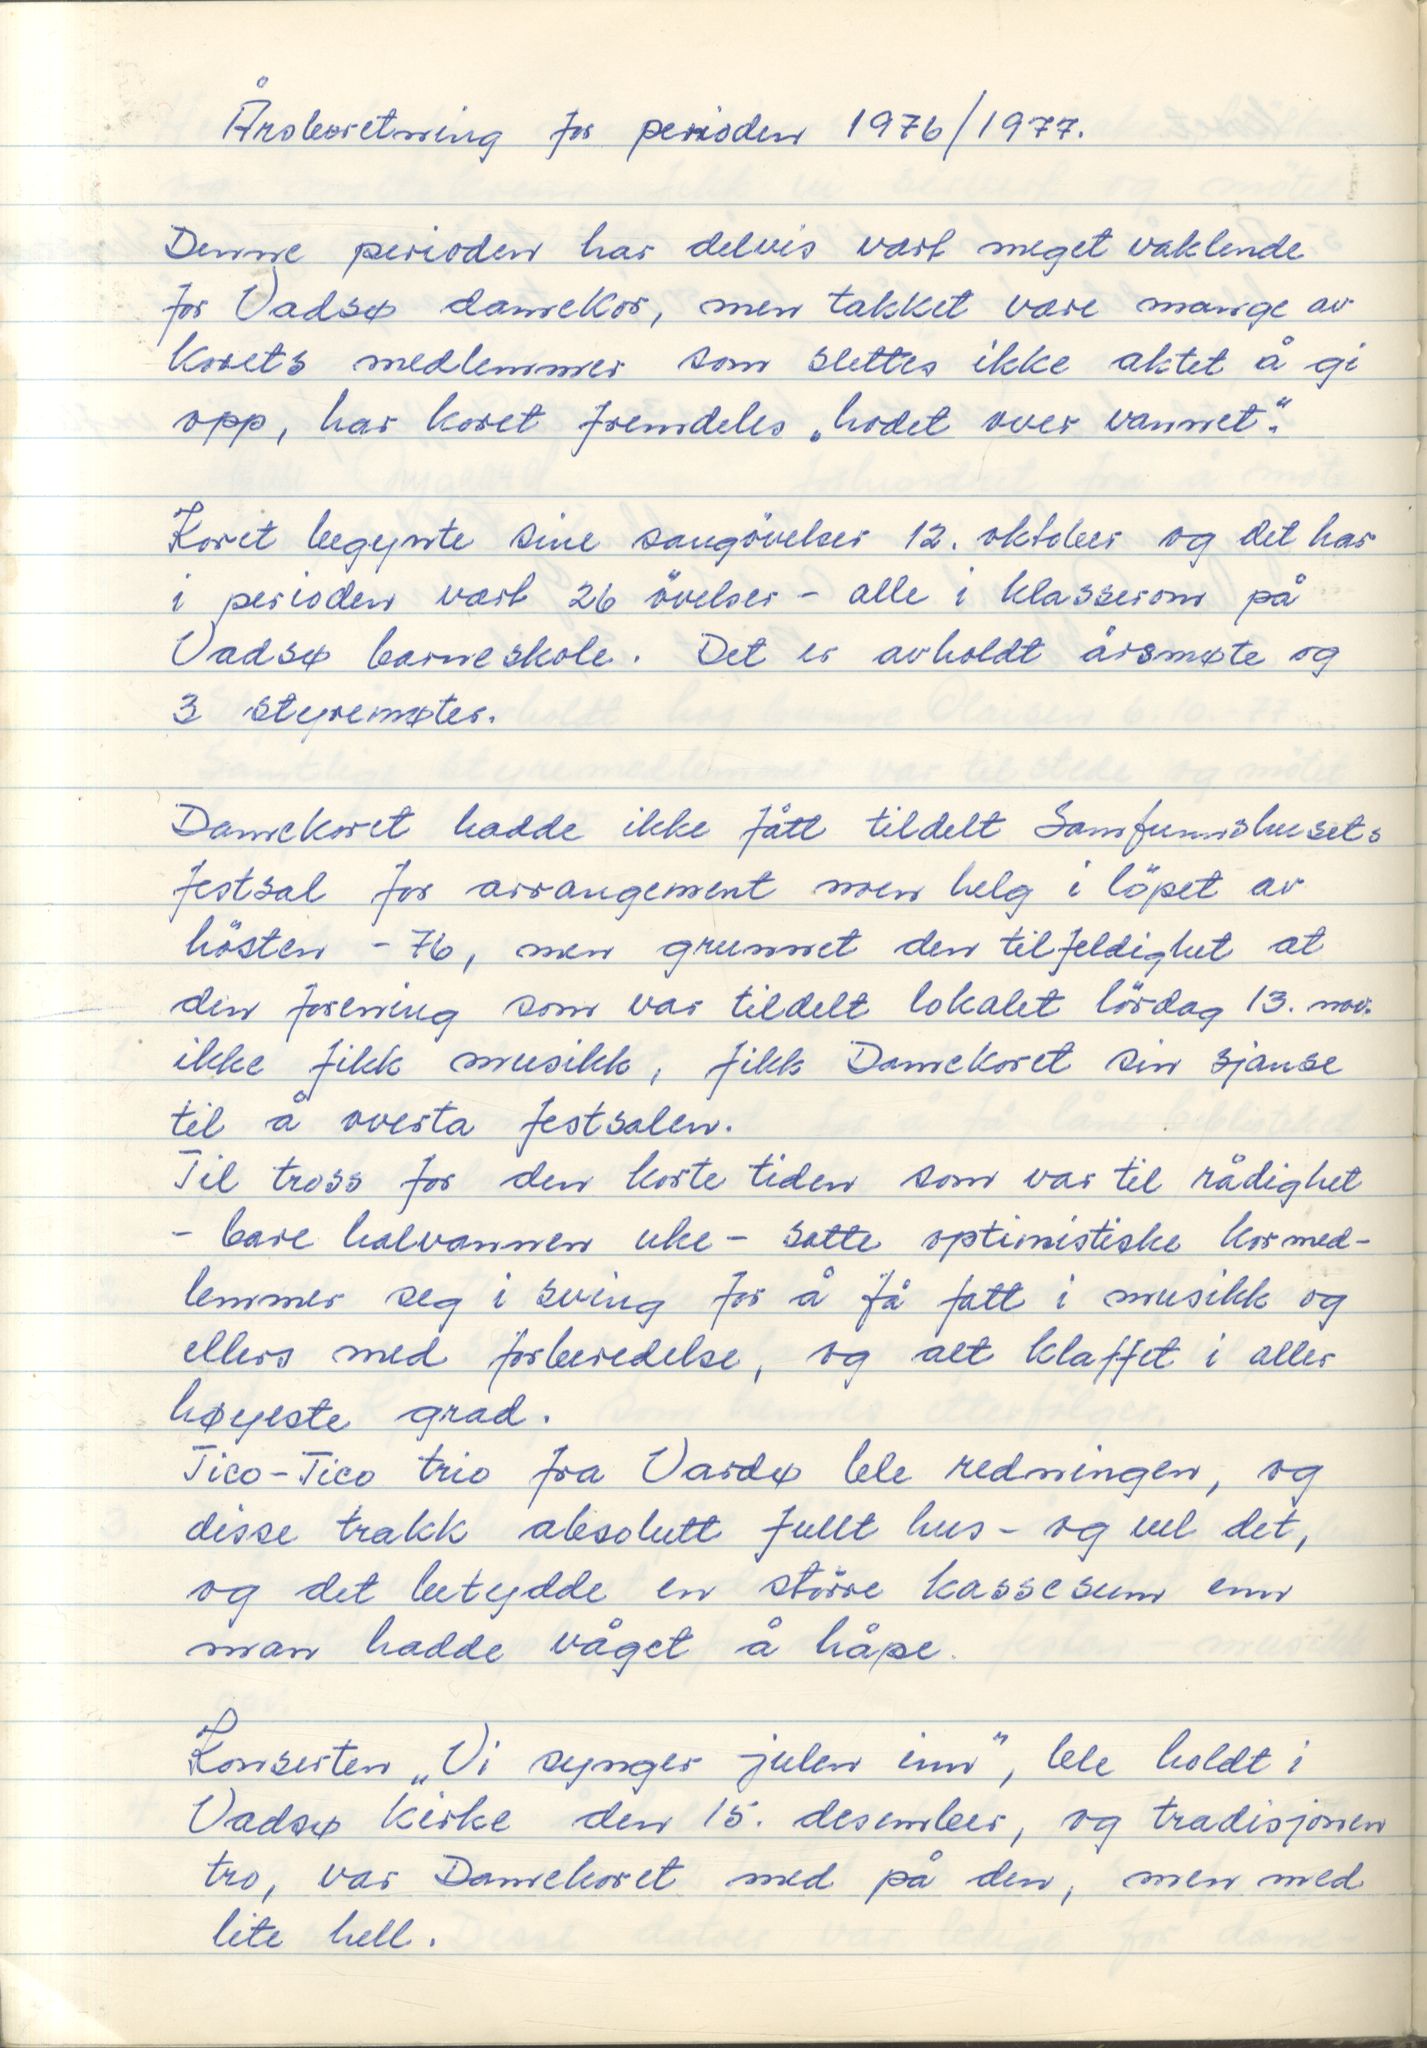 Årsberetning for perioden 1976/1977.
Denne perioden har delvis vært meget vaklende
for Vadsø damekor, men takket være mange av
korets medlemmer som slettes ikke aktet å gi
opp, har koret fremdeles „hodet over vannet".
Koret begynte sine sangövelser 12. oktober og det har
i perioden vært 26 övelser - alle i klasserom på
Vadsø barneskole. Det er avholdt årsmøte og
3 styremøter.
Damekoret hadde ikke fått tildelt Samfunnshusets
festsal for arrangement noen helg i löpet av
hösten -76, men grunnet den tilfeldighet at
den forening som var tildelt lokalet lördag 13. nov.
ikke fikk musikk, fikk Damekoret sin sjanse
til å overta festsalen.
Til tross for den korte tiden som var til rådighet
- bare halvannen uke - satte optimistiske kormed-
lemmer seg i sving for å få fatt i musikk og
ellers med forberedelse, og alt klaffet i aller
høyeste grad.
Tico-Tico trio fra Vardø ble redningen, og
disse trakk absolutt fullt hus - og vel det,
og det betydde en större kassesum enn
man hadde våget å håpe.
Konserten „Vi synger julen inn", ble holdt i
Vadsø kirke den 15. desember, og tradisjonen
tro, var Damekoret med på den, men med
lite hell.